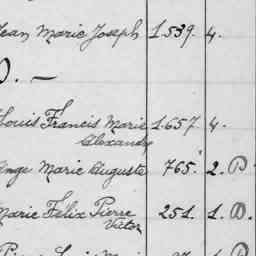 Jean Marie Joseph 1.539. 4.
D. —
Louis Francis Marie 1.657. 4.
Alexandre
Ange Marie Auguste 765. 2. D.
Marie Félix Pierre 251. 1. D.
Victor